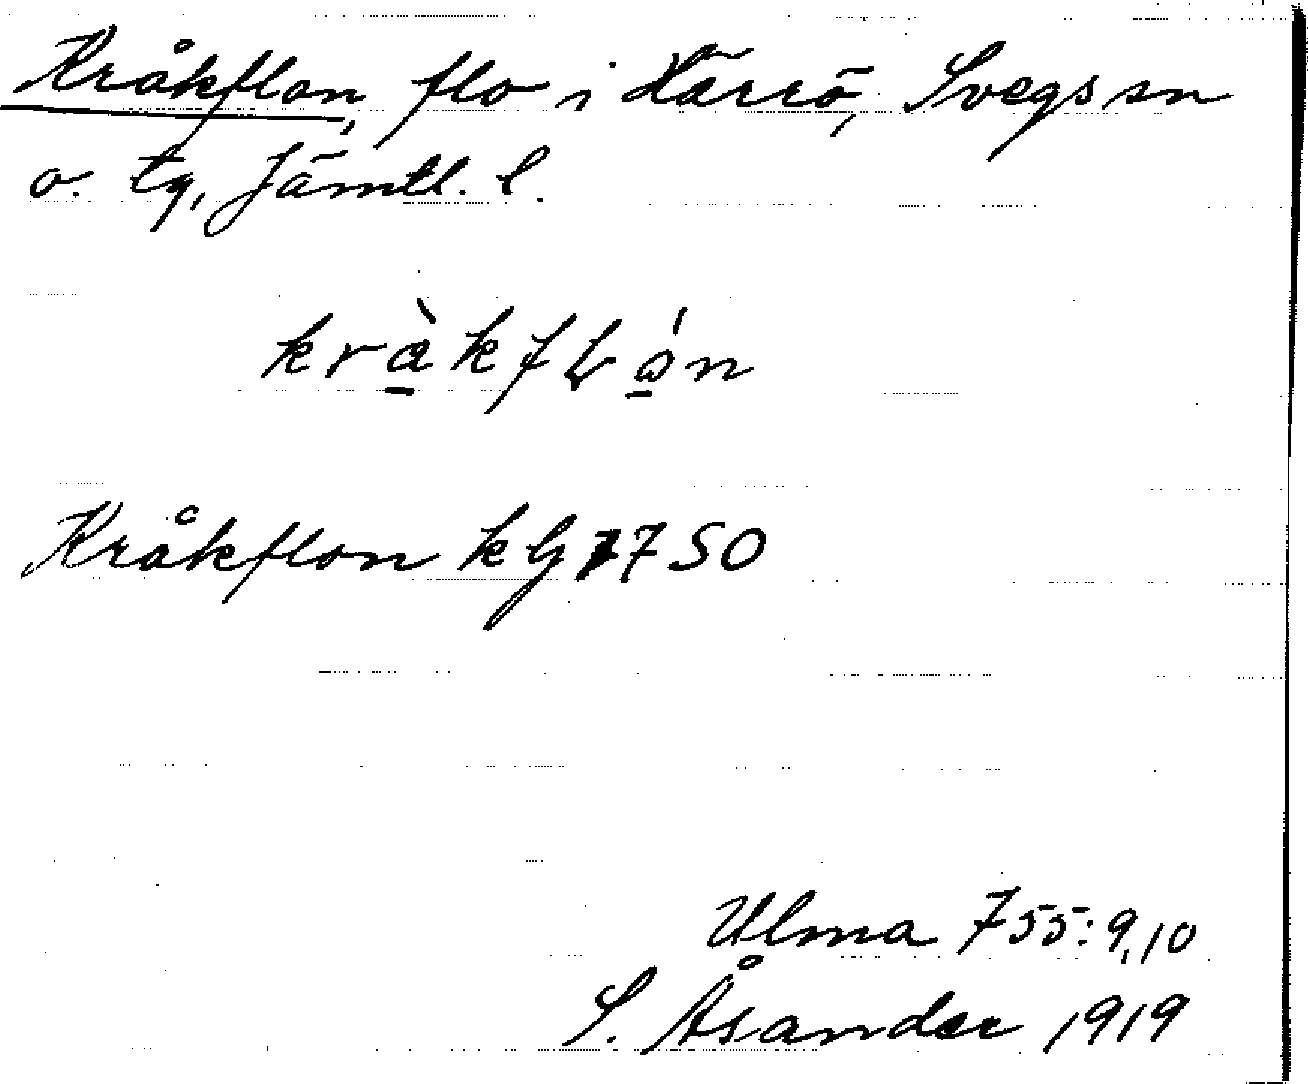 Kråkflon, flo i Härrö, Svegs sn
o. tg, Jämtl. l.
kràkfLón
Kråkflon kG 1750
Ulma 755:9,10
S. Åsander 1919